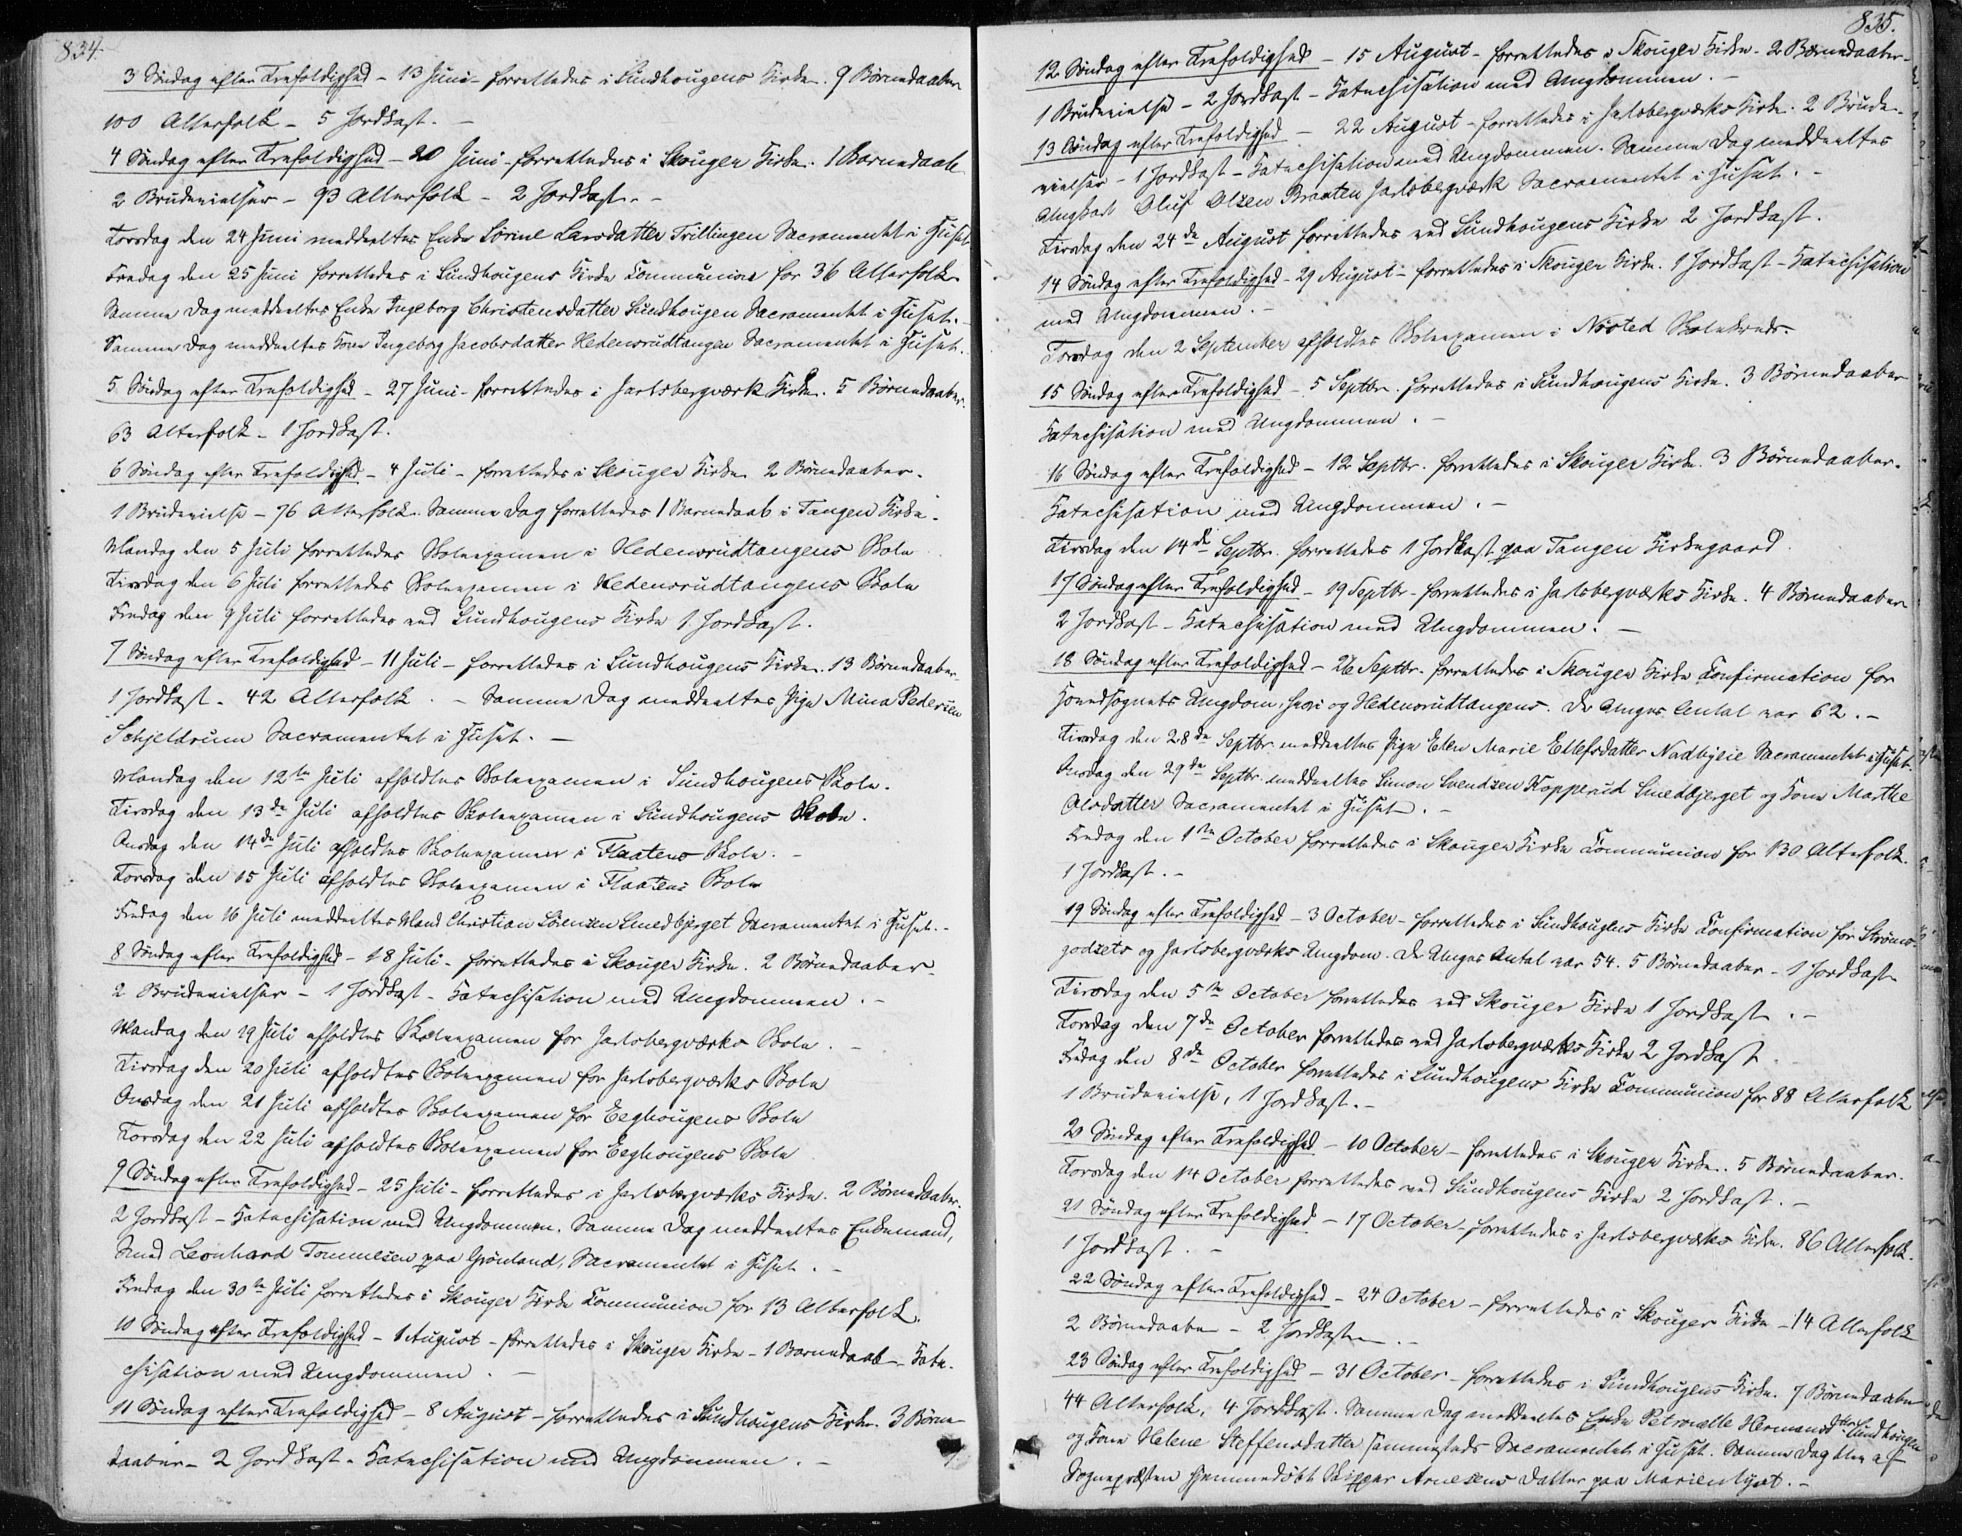 834.
3 Søndag efter Trefoldighed - 13 Juni - forrettedes i Sundhougens Kirke. 9 Børnedaaber
100 Alterfolk - 5 Jordkast. -
4 Søndag efter Trefoldighed - 20 Juni - forrettedes i Skouger Kirke. 1 Barnedaab
2 Brudevielser - 93 Alterfolk - 2 Jordkast. -
Torsdag den 24 Juni meddeeltes Enke Sørine Larsdatter Trillingen Sacramentet i Huset
Fredag den 25 Juni forrettedes i Sundhougens Kirke Communion for 36 Alterfolk
Samme Dag meddeeltes Enke Ingeborg Christensdatter Sundhougen Sacramentet i Huset. -
Samme Dag meddeeltes Kone Ingeborg Jacobsdatter Hedensrudtangen Sacramentet i Huset.
5 Søndag efter Trefoldighed - 27 Juni - forrettedes i Jarlsbergværk Kirke. 5 Børnedaaber.
63 Alterfolk - 1 Jordkast.
6 Søndag efter Trefoldighed - 4 Juli - forrettedes i Skouger Kirke 2 Børnedaaber.
1 Brudevielse - 76 Alterfolk. Samme Dag forrettedes 1 Barnedaab i Tangen Kirke.
Mandag den 5 Juli forrettedes Skoleexamen i Hedensrudtangens Skole
Tirsdag den 6 Juli forrettedes Skoleexamen i Hedensrudtangens Skole
Fredag den 9 Juli forrettedes ved Sundhougens Kirke 1 Jordkast.
7 Søndag efter Trefoldighed - 11 Juli - forrettedes i Sundhougens Kirke. 13 Børnedaaber.
1 Jordkast - 42 Alterfolk. - Samme Dag meddeeltes Pige Mina Pedersen
Schjeldrum Sacramentet i Huset. -
Mandag den 12te Juli afholdtes Skoleexamen i Sundhougens Skole.
Tirsdag den 13de Juli afholdtes Skoleexamen i Sundhougens Skole.
Onsdag den 14de Juli afholdtes Skoleexamen i Flaatens Skole. -
Torsdag den 15 Juli afholdtes Skoleexamen i Flaatens Skole
Fredag den 16 Juli meddeeltes Mand Christian Sørensen Smedbjerget Sacramentet i Huset. -
8 Søndag efter Trefoldighed - 18 Juli - forrettedes i Skouger Kirke. 2 Børnedaaber
2 Brudevielser - 1 Jordkast - Katechisation med Ungdommen. -
Mandag den 19 Juli afholdtes Skoleexamen for Jarlsbergværks Skole. -
Tirsdag den 20 Juli afholdtes Skoleexamen for Jarlsbergværks Skole
Onsdag den 21 Juli afholdtes Skoleexamen for Eeghougens Skole
Torsdag den 22 Juli afholdtes Skoleexamen for Eeghougens Skole
9 Søndag efter Trefoldighed - 25 Juli - forrettedes i Jarlsbergværks Kirke. 2 Børnedaaber.
2 Jordkast - Katechisation med Ungdommen. Samme Dag meddeeltes Enkemand,
Smed Leonhard Tommesen paa Grønland, Sacramentet i Huset. -
Fredag den 30te Juli forrettedes i Skouger Kirke Communion for 13 Alterfolk.
10 Søndag efter Trefoldighed - 1 August - forrettedes i Skouger Kirke - 1 Barnedaab - Kate-
chisation med Ungdommen. -
11 Søndag efter Trefoldighed - 8 August - forrettedes i Sundhougens Kirke. 3 Børne-
daaber - 2 Jordkast - Katechisation med Ungdommen. -
835.
12 Søndag efter Trefoldighed - 15 August - forrettedes i Skouger Kirke. 2 Børnedaaber -
1 Brudevielse - 2 Jordkast - Katechisation med Ungdommen. -
13 Søndag efter Trefoldighed - 22 August - forrettedes i Jarlsbergværks Kirke. 2 Brude-
vielser - 1 Jordkast - Katechisation med Ungdommen. Samme Dag meddeeltes
Ungkarl Oluf Olsen Braaten Jarlsbergværk Sacramentet i Huset. -
Tirsdag den 24de August forrettedes ved Sundhougens Kirke 2 Jordkast.
14 Søndag efter Trefoldighed - 29 August - forrettedes i Skouger Kirke. 1 Jordkast - Katechisation
med Ungdommen. -
Torsdag den 2 September afholdtes Skoleexamen i Nøsted Skolekreds -
15 Søndag efter Trefoldighed - 5 Septbr. forrettedes i Sundhougens Kirke. 3 Børnedaaber
Katechisation med Ungdommen. -
16 Søndag efter Trefoldighed - 12 Septbr. forrettedes i Skouger Kirke. 3 Børnedaaber.
Katechisation med Ungdommen. -
Tirsdag den 14de Septbr. forrettedes 1 Jordkast paa Tangen Kirkegaard
17 Søndag efter Trefoldighed - 19 Septbr - forrettedes i Jarlsbergværks Kirke. 4 Børnedaaber
2 Jordkast - Katechisation med Ungdommen. -
18 Søndag efter Trefoldighed - 26 Septbr. forrettedes i Skouger Kirke Confirmation for
Hovedsognets Ungdom, og Hedensrudtangens. De Unges Antal var 62. -
Tirsdag den 28de Septbr. meddeeltes Pige Elen Marie Ellefsdatter Sacramentet i Huset.
Onsdag den 29de Septbr. meddeeltes Simon Svendsen Kopperud Smedbjerget og Kone Marthe
Olsdatter Sacramentet i Huset. -
Fredag den 1ste October forrettedes i Skouger Kirke Communion for 130 Alterfolk.
1 Jordkast. -
19 Søndag efter Trefoldighed - 3 October - forrettedes i Sundhougens Kirke Confirmation for Strøms-
godsets og Jarlsbergværks Ungdom. De Unges Antal var 54. 5 Børnedaaber - 1 Jordkast
Tirsdag den 5te October forrettedes ved Skouger Kirke 1 Jordkast. -
Torsdag den 7de October forrettedes ved Jarlsbergværks Kirke 2 Jordkast.
Fredag den 8de October forrettedes i Sundhougens Kirke Communion for 88 Alterfolk
1 Brudevielse, 1 Jordkast. -
20 Søndag efter Trefoldighed - 10 October - forrettedes i Skouger Kirke. 5 Børnedaaber.
Torsdag den 14 October forrettedes ved Sundhougens Kirke 2 Jordkast. -
21 Søndag efter Trefoldighed - 17 October - forrettedes i Jarlsbergværks Kirke. 86 Alterfolk.
1 Jordkast. -
22 Søndag efter Trefoldighed - 24 October - forrettedes i Skouger Kirke - 14 Alterfolk
2 Børnedaaber - 2 Jordkaster. -
23 Søndag efter Trefoldighed - 31 October - forrettedes i Sundhougens Kirke. 7 Børnedaaber
44 Alterfolk, 4 Jordkast. Samme Dag meddeeltes Enke Petronelle Hermansdtter Sundhougen
og Kone Helene Steffensdatter sammesteds Sacramentet i Huset. Samme Dag blev af
Sognepræsten hjemmedøbt Skipper Arnesens Datter paa Marienlyst. -